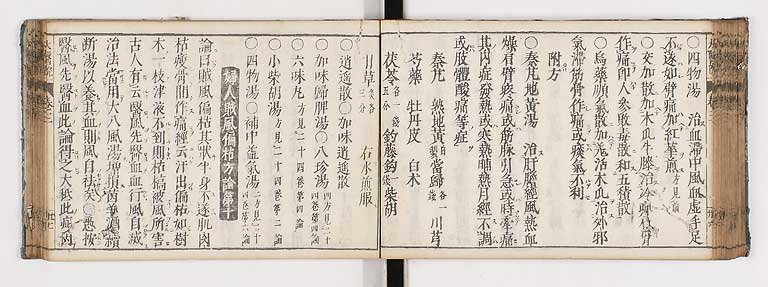 〇四物湯 治血滯中風血虛手足
不遂如臂痛加紅華煎 方見前
〇交加散加木瓜牛膝治冷與骨
作痛即人參敗毒散和五積散
〇烏藥順氣散加羌活木瓜治外邪
氣滯筋骨作痛或痰氣不利
附方
〇秦艽地黃湯 治肝膽經風熱血
燥有臂疼痛或筋脉引急或時牽痛
其內症發熱或寒熱晡熱月經不調
或肢體酸痛等症
秦艽 熟地黃 當歸 川芎
芍藥 牡丹皮 白朮
茯苓 各一錢 釣藤鈎 柴胡
甘草 各三分 右水煎服
〇逍遥散〇加味逍遥散
〇加味歸脾湯〇八珍湯
〇六味丸 方見二十四卷第四論
〇小柴胡湯 方見二十四卷第二論
〇四物湯〇補中益氣湯
婦人賊風偏枯方論第十
論曰賊風偏枯其狀半身不遂肌肉
枯瘦骨間作痛經云汗出偏枯如樹
木一枝津液不到則枯槁被風所害
古人有云醫風先醫血血行風自滅
治法當用大八風湯增損茵芋酒續
斷湯以養其血則風自祛矣〇愚按
醫風先醫血此論得之大抵此病